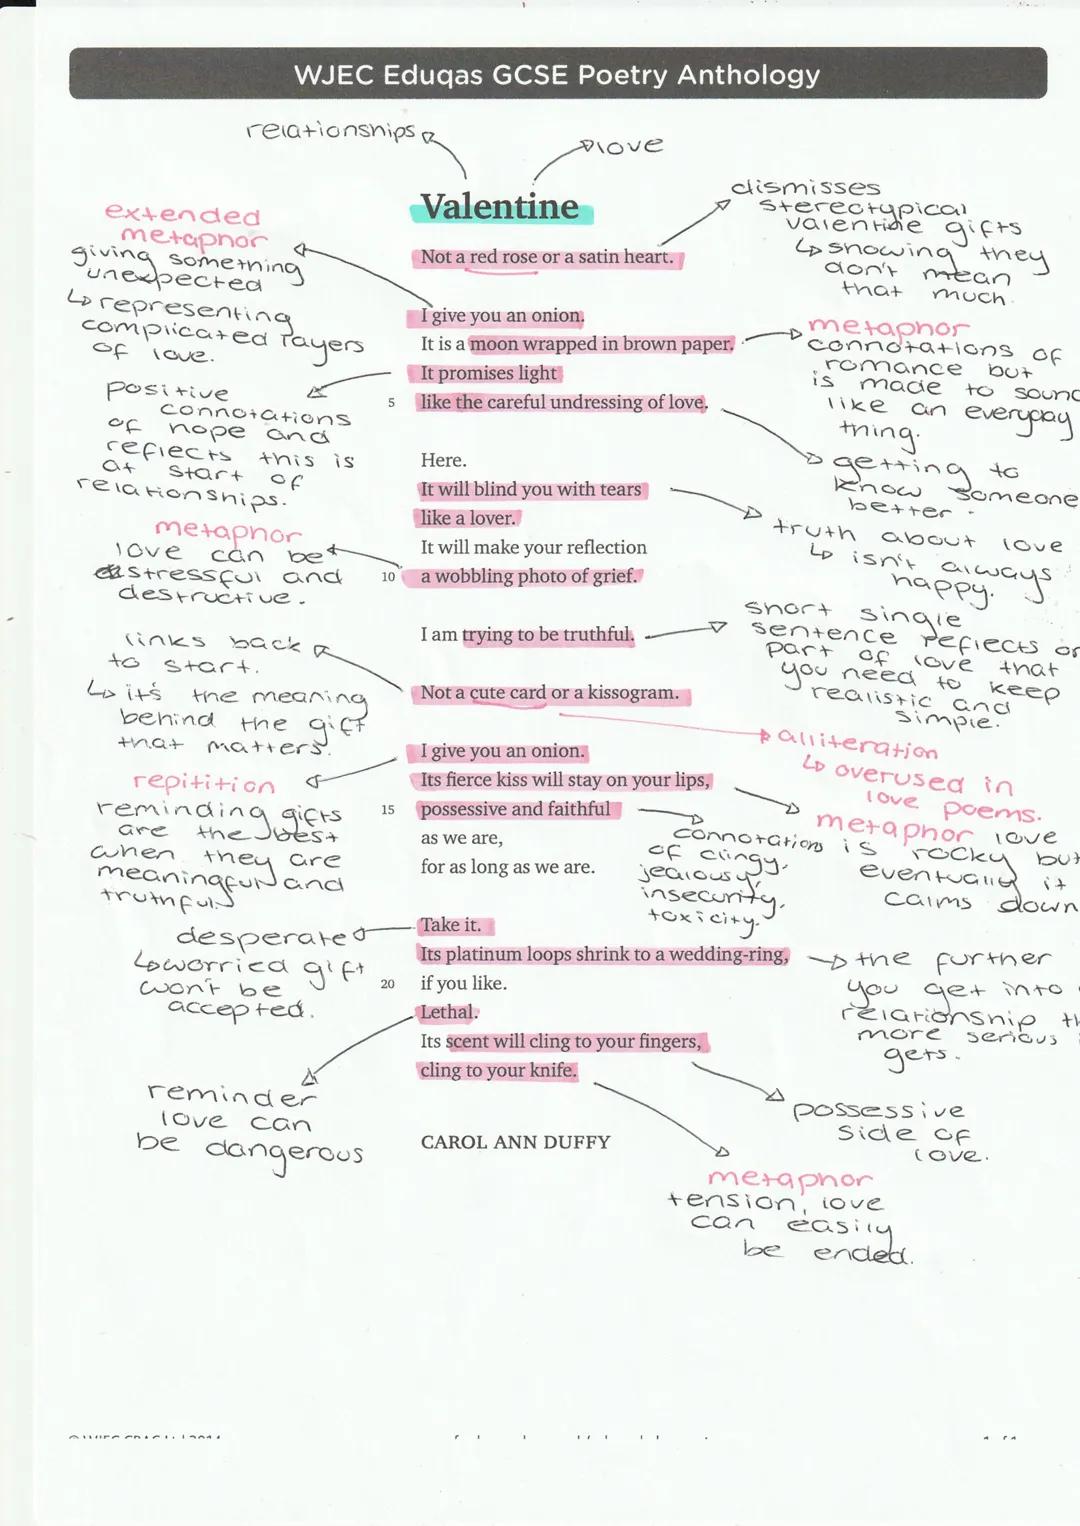 WJEC Eduqas GCSE Poetry Anthology
relationships
love
Valentine
Not a red rose or a satin heart.
I give you an onion.
It is a moon wrapped in brown paper.
It promises light
5 like the careful undressing of love.
Here.
It will blind you with tears
like a lover.
It will make your reflection
10 a wobbling photo of grief.
I am trying to be truthful.
Not a cute card or a kissogram.
I give you an onion.
Its fierce kiss will stay on your lips,
15 possessive and faithful
as we are,
for as long as we are.
Take it.
Its platinum loops shrink to a wedding-ring,
20 if you like.
Lethal.
Its scent will cling to your fingers,
cling to your knife.
CAROL ANN DUFFY
extended
metaphor
giving something
unexpected
↳ representing
complicated layers
of love.
positive
connotations
of hope and
reflects this is
at start of
relationships.
metaphor
love can be
stressful and
destructive.
links back
to start.
↳ it's the meaning
behind the gift
that matters.
repitition
reminding gifts
are the best
when they are
meaningful and
truthful.
desperate
↳ worried gift
won't be
accepted.
reminder
love can
be dangerous
dismisses
stereotypical
valentine gifts
↳ showing they
don't mean
that much.
metaphor
connotations of
romance but
is made to sound
like an everyday
thing.
getting to
know someone
better.
truth about love
↳ isn't always
happy.
short single
sentence reflects on
part of love that
you need to keep
realistic and
simple.
alliteration
↳ overused in
love poems.
metaphor love
is rocky but
eventually it
calms down
connotations
of clingy,
jealousy,
insecurity,
toxicity.
the further
you get into
relationship
more serious
gets.
possessive
side of
love.
metaphor
tension, love
can easily
be ended.